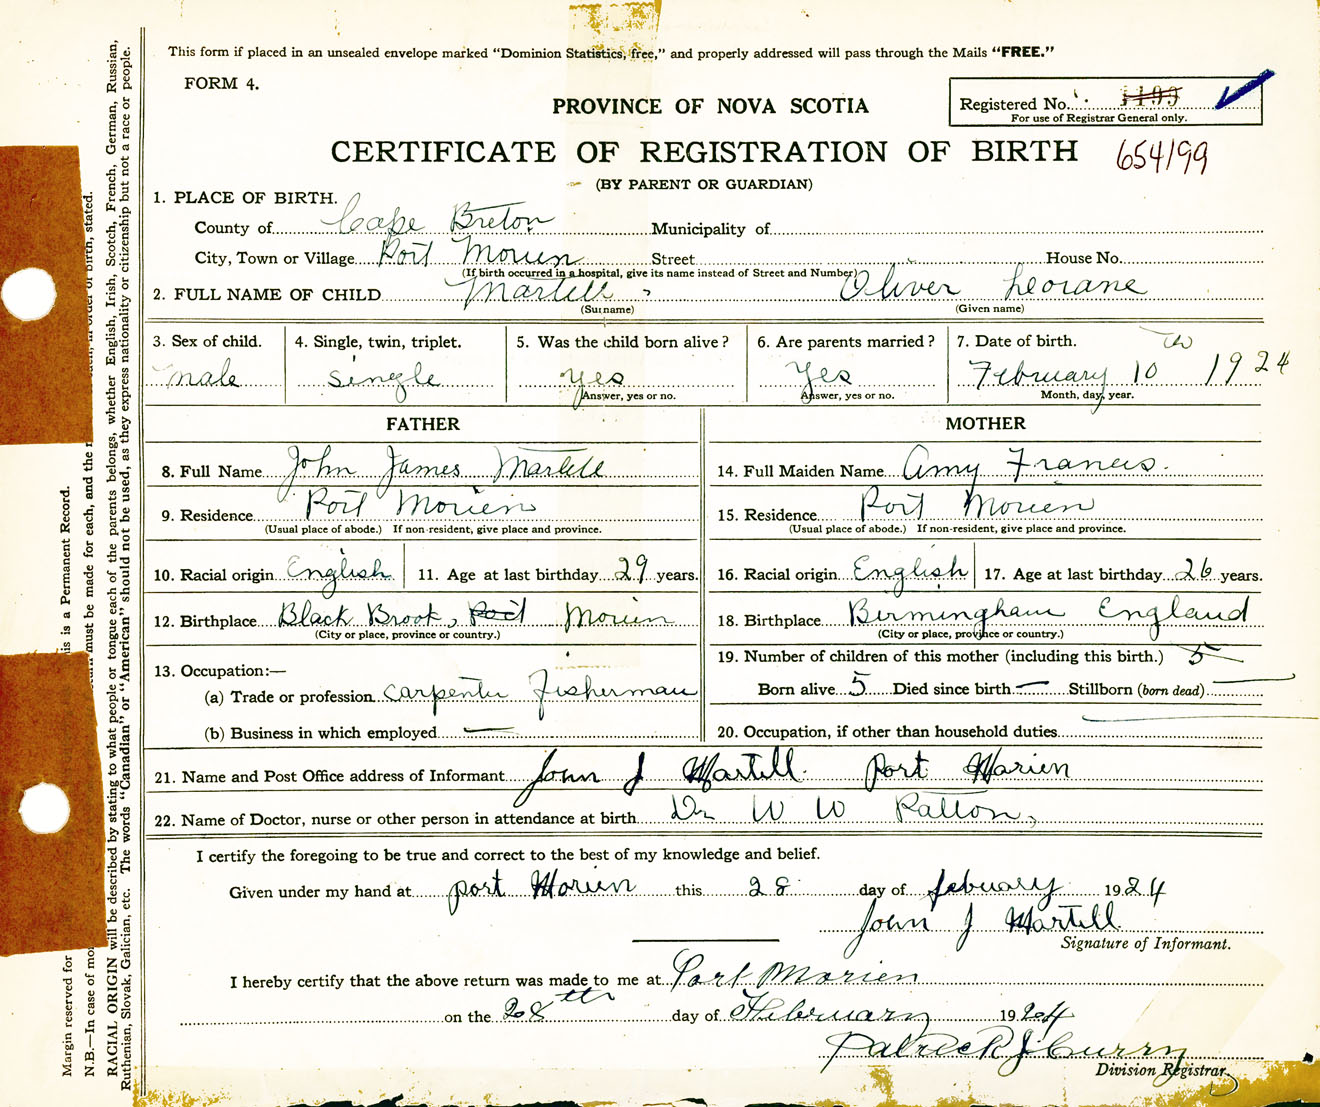 This form if placed in an unsealed envelope marked "Dominion Statistics, free," and properly addressed will pass through the Mails "FREE."
FORM 4.
PROVINCE OF NOVA SCOTIA
Registered No. 1199
For use of Registrar General only.
CERTIFICATE OF REGISTRATION OF BIRTH 654199
(BY PARENT OR GUARDIAN)
1. PLACE OF BIRTH.
County of Cape Breton Municipality of
City, Town or Village Port Morien Street House No.
(If birth occurred in a hospital, give its name instead of Street and Number)
2. FULL NAME OF CHILD Martell, Oliver Leorane
(Surname) (Given name)
3. Sex of child. 4. Single, twin, triplet. 5. Was the child born alive? 6. Are parents married? 7. Date of birth.
male single yes Yes February 10th 1924
Answer, yes or no. Answer, yes or no. Month, day, year.
FATHER MOTHER
8. Full Name John James Martell 14. Full Maiden Name Amy Francis.
9. Residence Port Morien 15. Residence Port Morien
(Usual place of abode.) If non-resident, give place and province. (Usual place of abode.) If non-resident, give place and province.
10. Racial origin English 11. Age at last birthday 29 years. 16. Racial origin English 17. Age at last birthday 26 years.
12. Birthplace Black Brook, Port Morien 18. Birthplace Birmingham England
(City or place, province or country.) (City or place, province or country.)
13. Occupation:— 19. Number of children of this mother (including this birth.) 5
(a) Trade or profession Carpenter Fisherman Born alive 5 Died since birth — Stillborn (born dead)
(b) Business in which employed — 20. Occupation, if other than household duties
21. Name and Post Office address of Informant John J Martell Port Morien
22. Name of Doctor, nurse or other person in attendance at birth Dr W W Patton,
I certify the foregoing to be true and correct to the best of my knowledge and belief.
Given under my hand at Port Morien this 28 day of february 1924
John J Martell
Signature of Informant.
I hereby certify that the above return was made to me at Port Morien
on the 28th day of February 1924
Patrick J. Curry
Division Registrar.
Margin reserved for his is a Permanent Record.
N.B.—In case of mor must be made for each, and the n order of birth, stated.
RACIAL ORIGIN will be described by stating to what people or tongue each of the parents belongs, whether English, Irish, Scotch, French, German, Russian,
Ruthenian, Slovak, Galician, etc. The words "Canadian" or "American" should not be used, as they express nationality or citizenship but not a race or people.